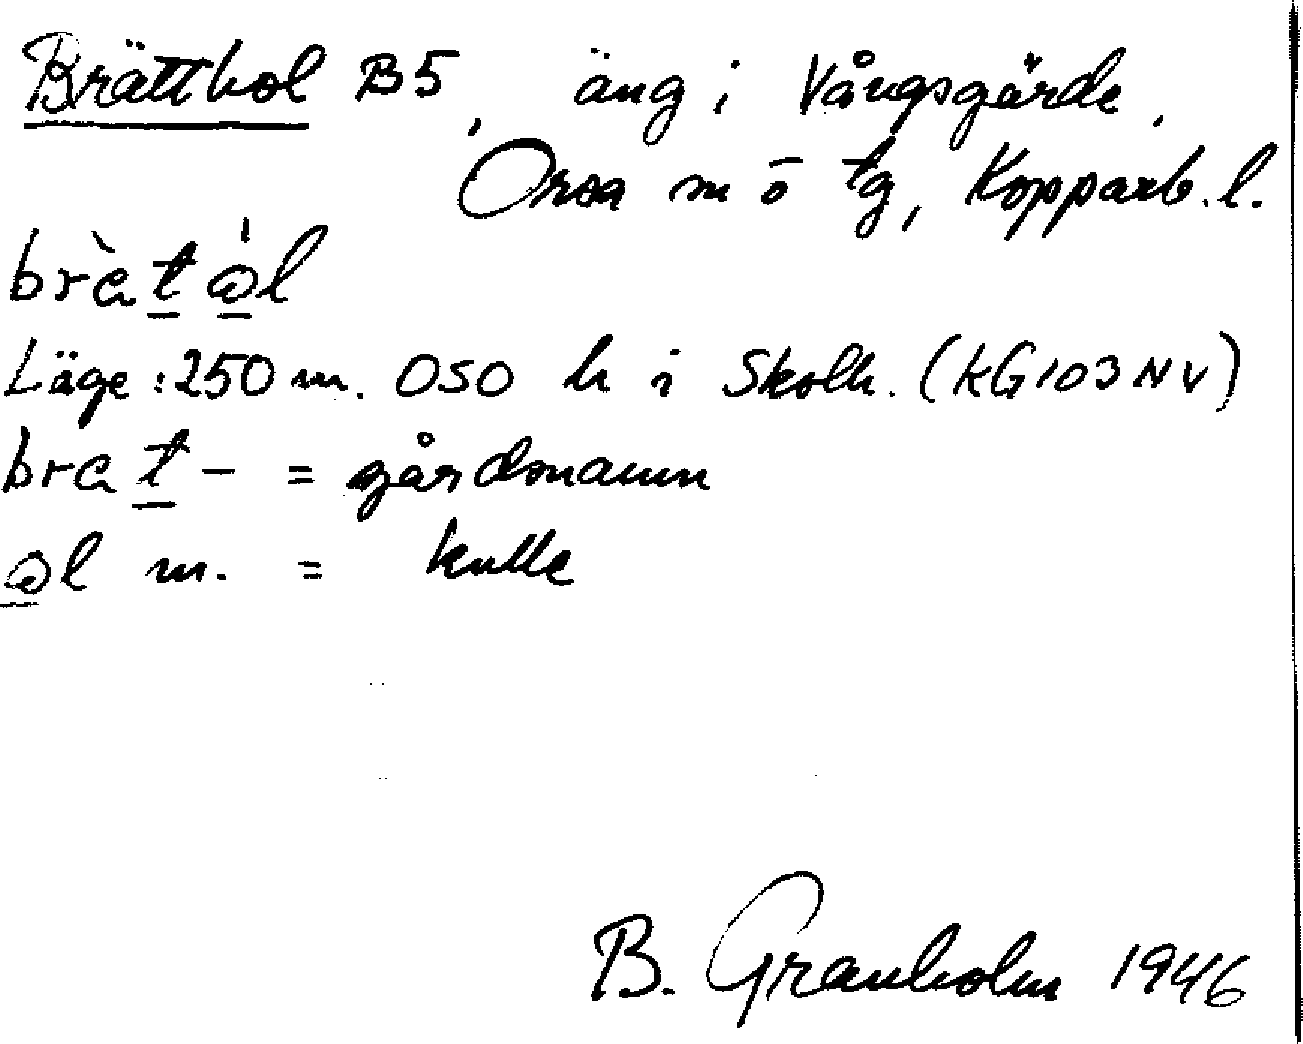 Brätthol B5, äng i Vångsgärde.
Orsa m ō tg, Kopparb. l.
brɑ̀t ol
Läge: 250 m. OSO h i Skolh. (KG 103 NV)
brɑt- = gårdsnamn
ol m. = kulle
B. Granholm 1946